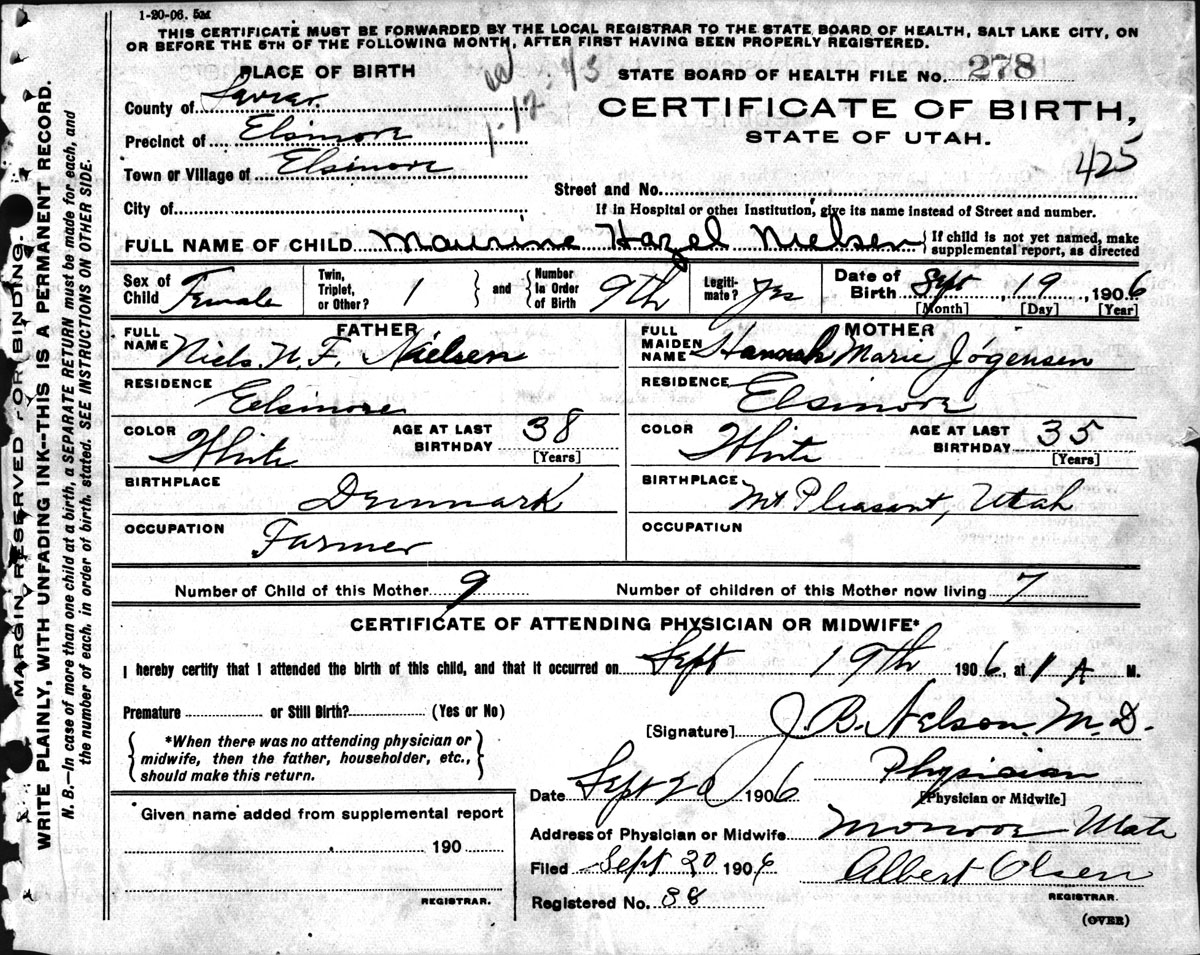 1-20-06. 5M
THIS CERTIFICATE MUST BE FORWARDED BY THE LOCAL REGISTRAR TO THE STATE BOARD OF HEALTH, SALT LAKE CITY, ON
OR BEFORE THE 5TH OF THE FOLLOWING MONTH, AFTER FIRST HAVING BEEN PROPERLY REGISTERED.
PLACE OF BIRTH
County of Sevier.
Precinct of Elsinore
Town or Village of Elsinore
City of
STATE BOARD OF HEALTH FILE No. 278
CERTIFICATE OF BIRTH,
STATE OF UTAH.
425
Street and No.
If in Hospital or other Institution, give its name instead of Street and number.
FULL NAME OF CHILD Maurine Hazel Nielsen { If child is not yet named, make
supplemental report, as directed
Sex of Child Female
Twin, Triplet, or Other? 1 } and { Number in Order of Birth 9th
Legitimate? Yes
Date of Birth Sept, 19, 1906
[Month] [Day] [Year]
FATHER
FULL NAME Niels. N. F. Nielsen
RESIDENCE Eelsinore
COLOR White AGE AT LAST BIRTHDAY 38
[Years]
BIRTHPLACE Denmark
OCCUPATION Farmer
MOTHER
FULL MAIDEN NAME Hannah Marie Jørgensen
RESIDENCE Elsinore
COLOR White AGE AT LAST BIRTHDAY 35
[Years]
BIRTHPLACE Mt. Pleasant, Utah
OCCUPATION
Number of Child of this Mother 9 Number of children of this Mother now living 7
CERTIFICATE OF ATTENDING PHYSICIAN OR MIDWIFE*
I hereby certify that I attended the birth of this child, and that it occurred on Sept 19th 1906, at 1 A M.
Premature or Still Birth? (Yes or No)
{ *When there was no attending physician or
midwife, then the father, householder, etc.,
should make this return. }
[Signature] J. B. Nelson. M. D.
Physician
Date Sept 20 1906 [Physician or Midwife]
Address of Physician or Midwife Monroe Utah
Filed Sept 20 1906 Albert Olsen
REGISTRAR.
Registered No. 38
(OVER)
Given name added from supplemental report
190
REGISTRAR.
MARGIN RESERVED FOR BINDING.
WRITE PLAINLY, WITH UNFADING INK--THIS IS A PERMANENT RECORD.
N. B.--In case of more than one child at a birth, a SEPARATE RETURN must be made for each, and
the number of each. in order of birth. stated. SEE INSTRUCTIONS ON OTHER SIDE.